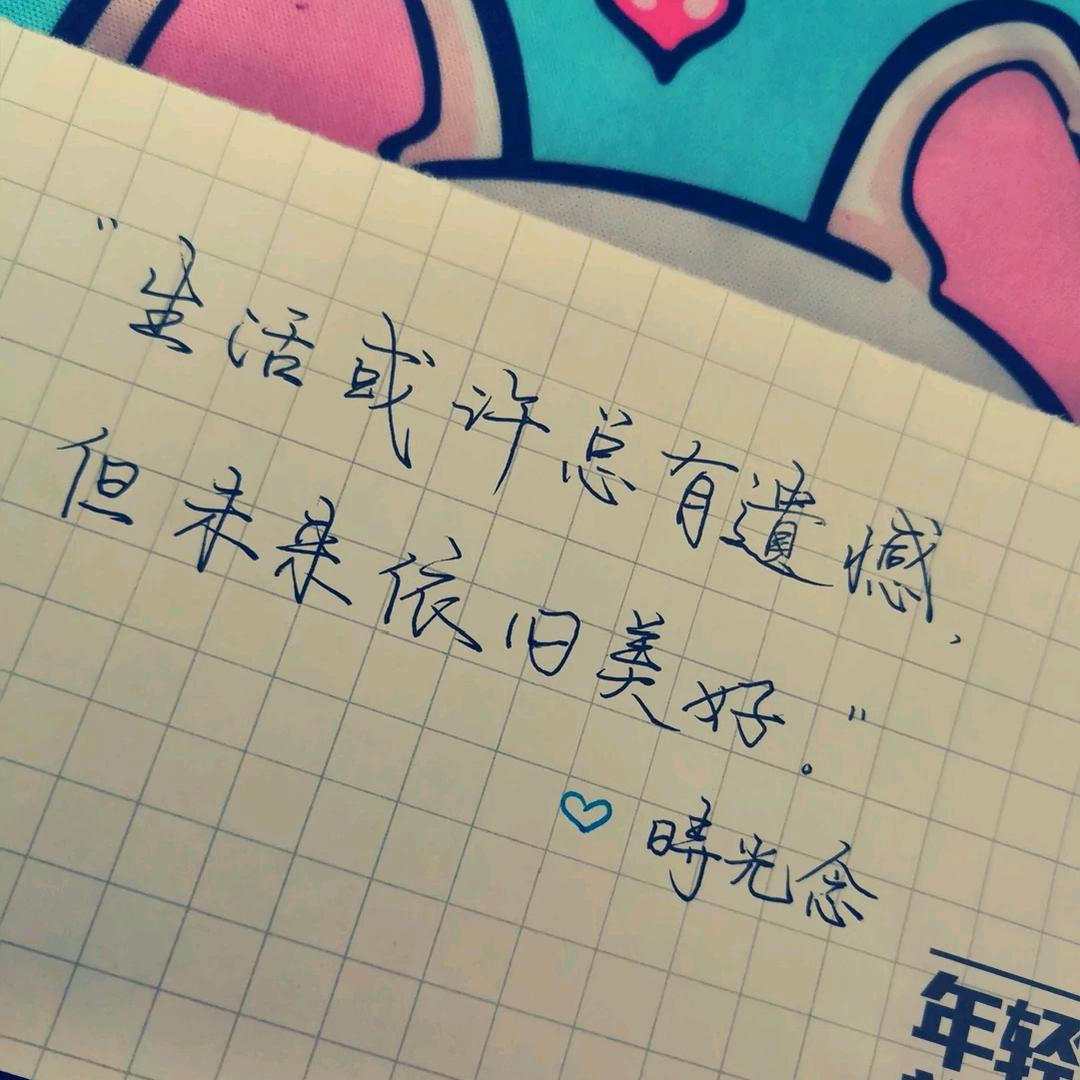 "生活或许总有遗憾,
但未来依旧美好."
♡ 時光念
年轻